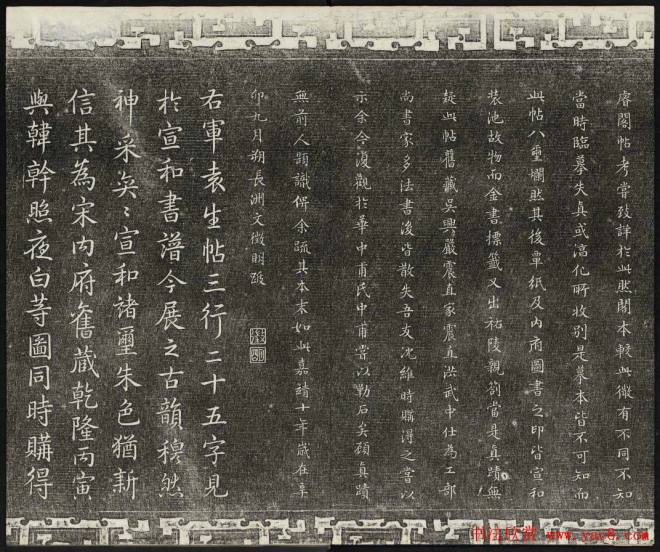 睿閣帖考嘗致詳於此然閣本較此微有不同不知
當時臨摹失真或淳化所收别是摹本皆不可知而
此帖八璽爛然其後覃紙及内府圖書之印皆宣和
裝池故物而金書標籤又出祐陵親劄當是真蹟無
疑此帖舊藏吴興嚴震直家震直洪武中仕為工部
尚書家多法書後皆散失吾友沈維時購得之嘗以
示余今復觀於華中甫氏中甫嘗以勒石矣顧真蹟
無前人題識俾余疏其本末如此嘉靖十年歲在辛
卯九月朔長洲文徵明跋
右軍袁生帖三行二十五字見
於宣和書譜今展之古韻穆然
神采奕〻宣和諸璽朱色猶新
信其為宋内府舊藏乾隆丙寅
與韓幹照夜白等圖同時購得
书法欣赏 www.yac8.com